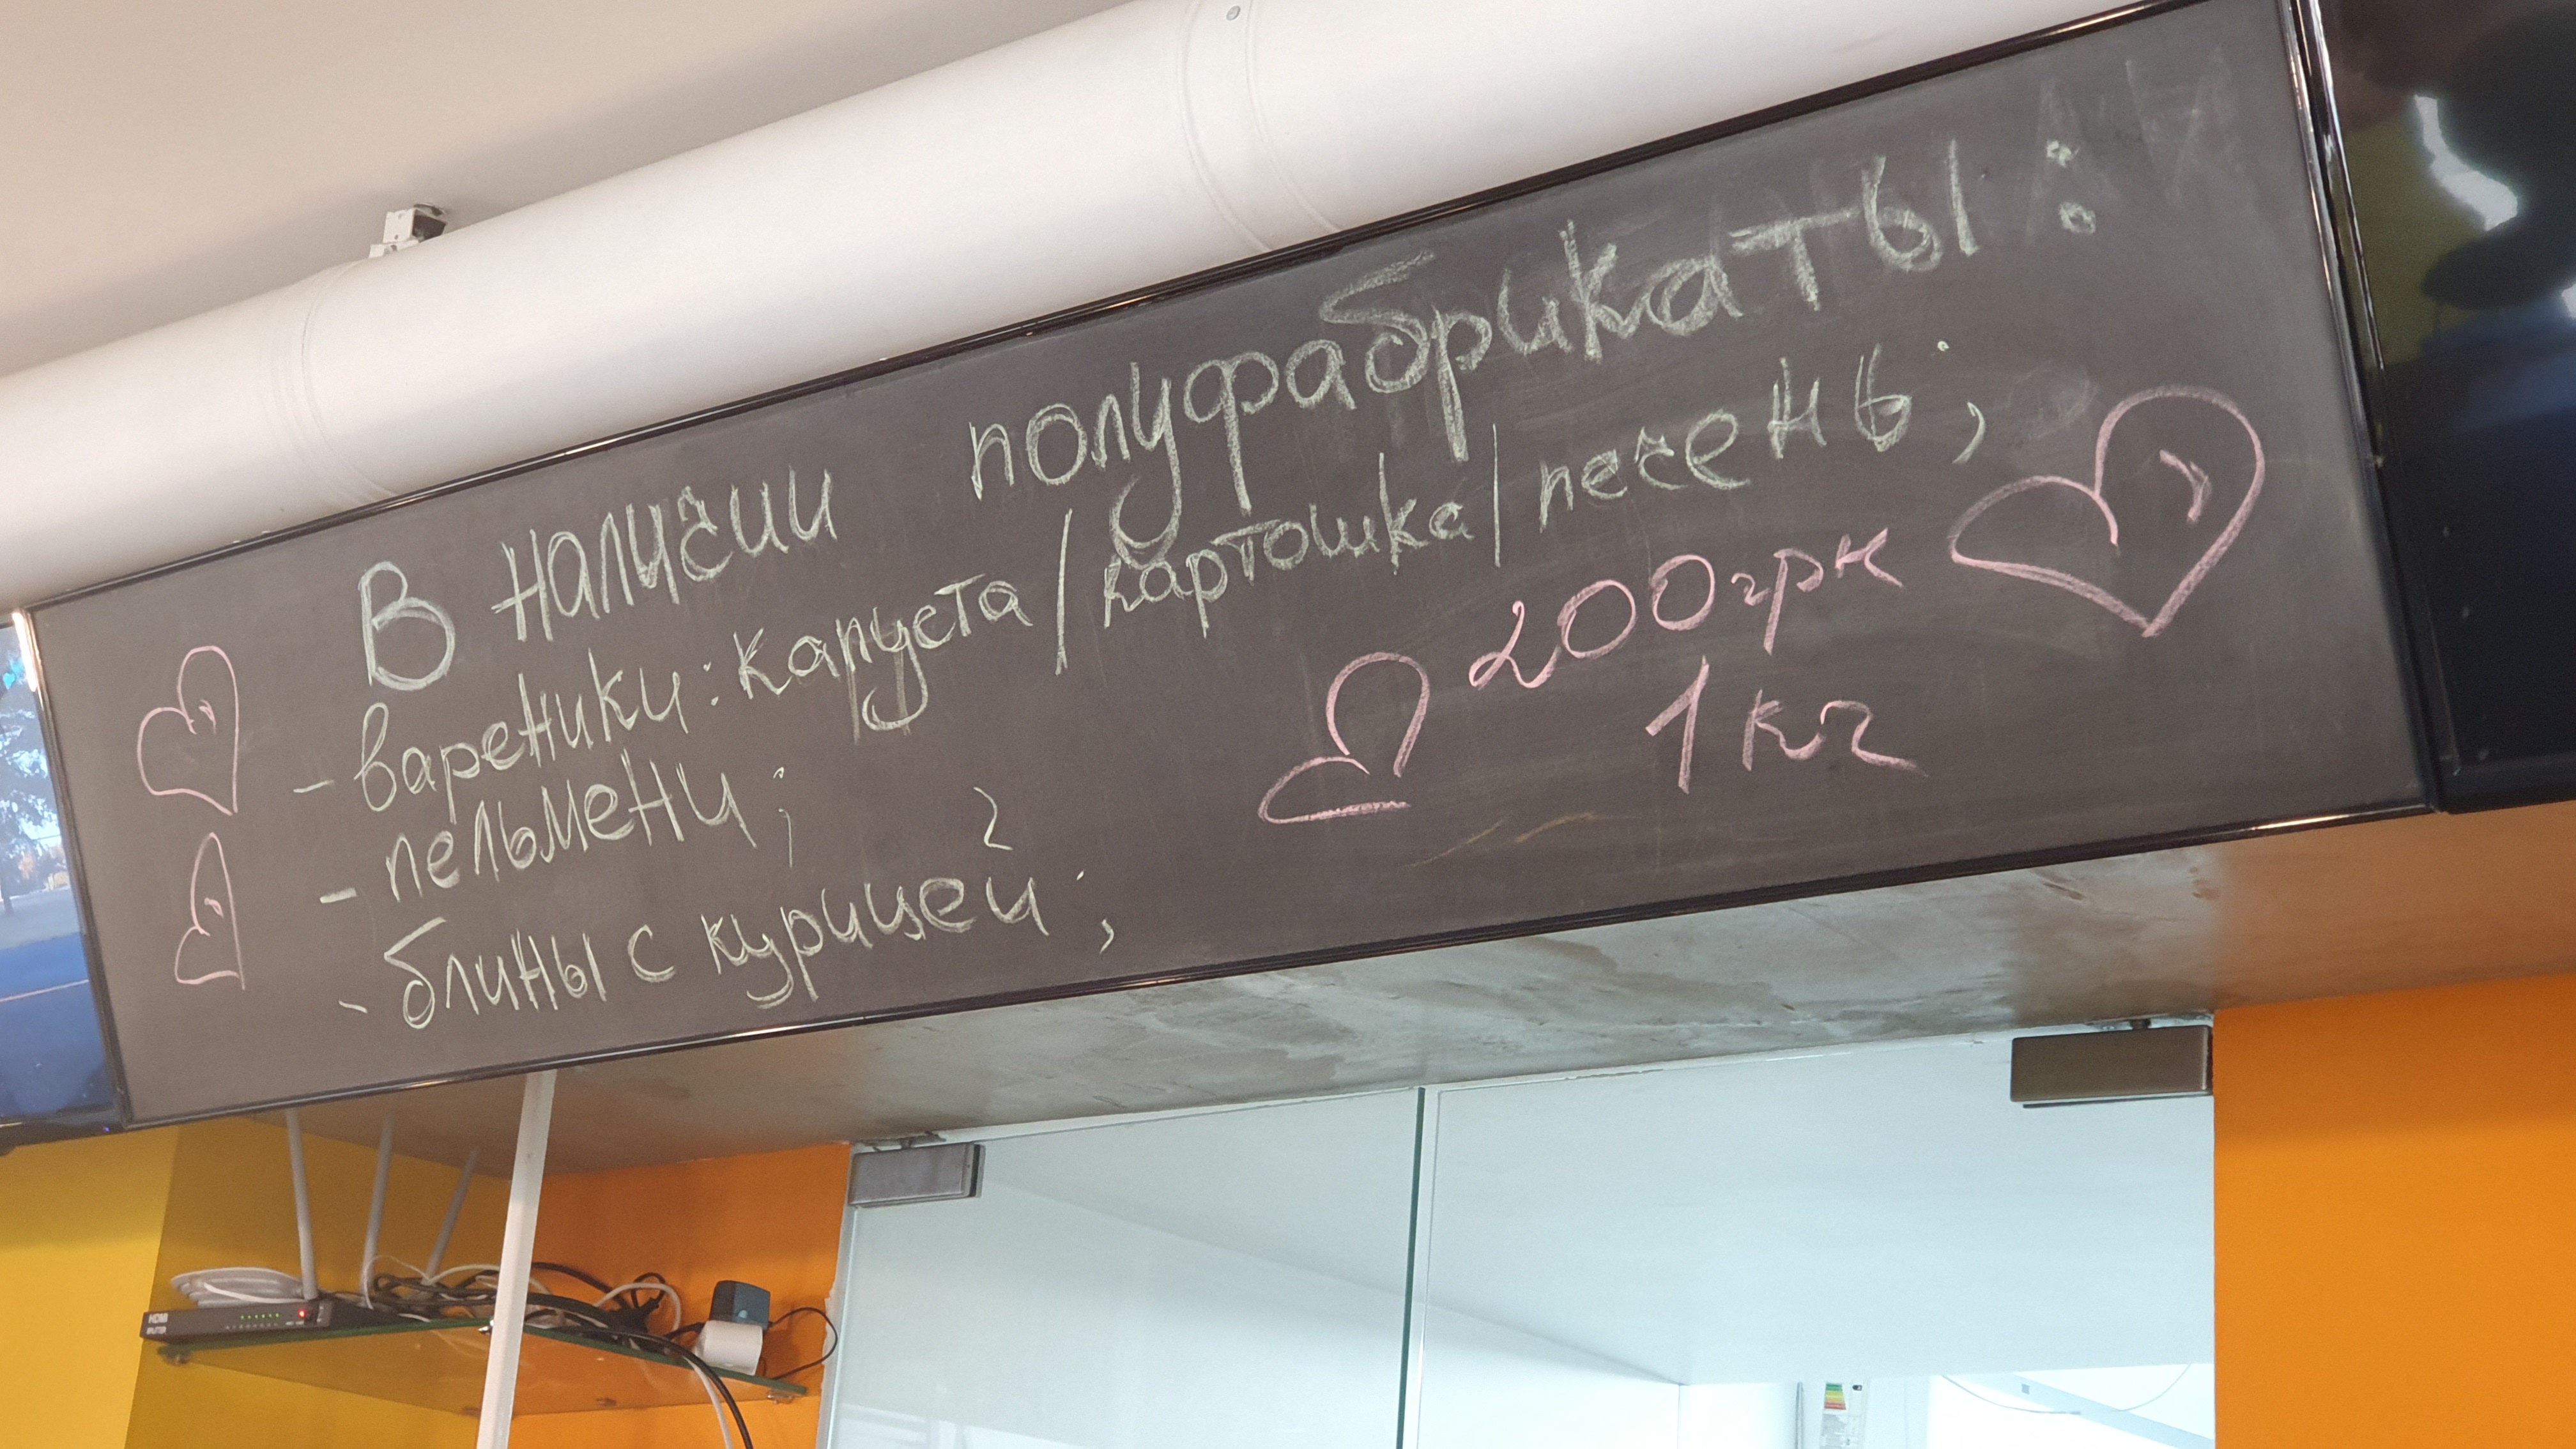 В наличии полуфабрикаты:
- вареники: капуста/картошка/печень;
- пельмени;
- блины с курицей;
200грн
1кг
HDMI
SPLITTER